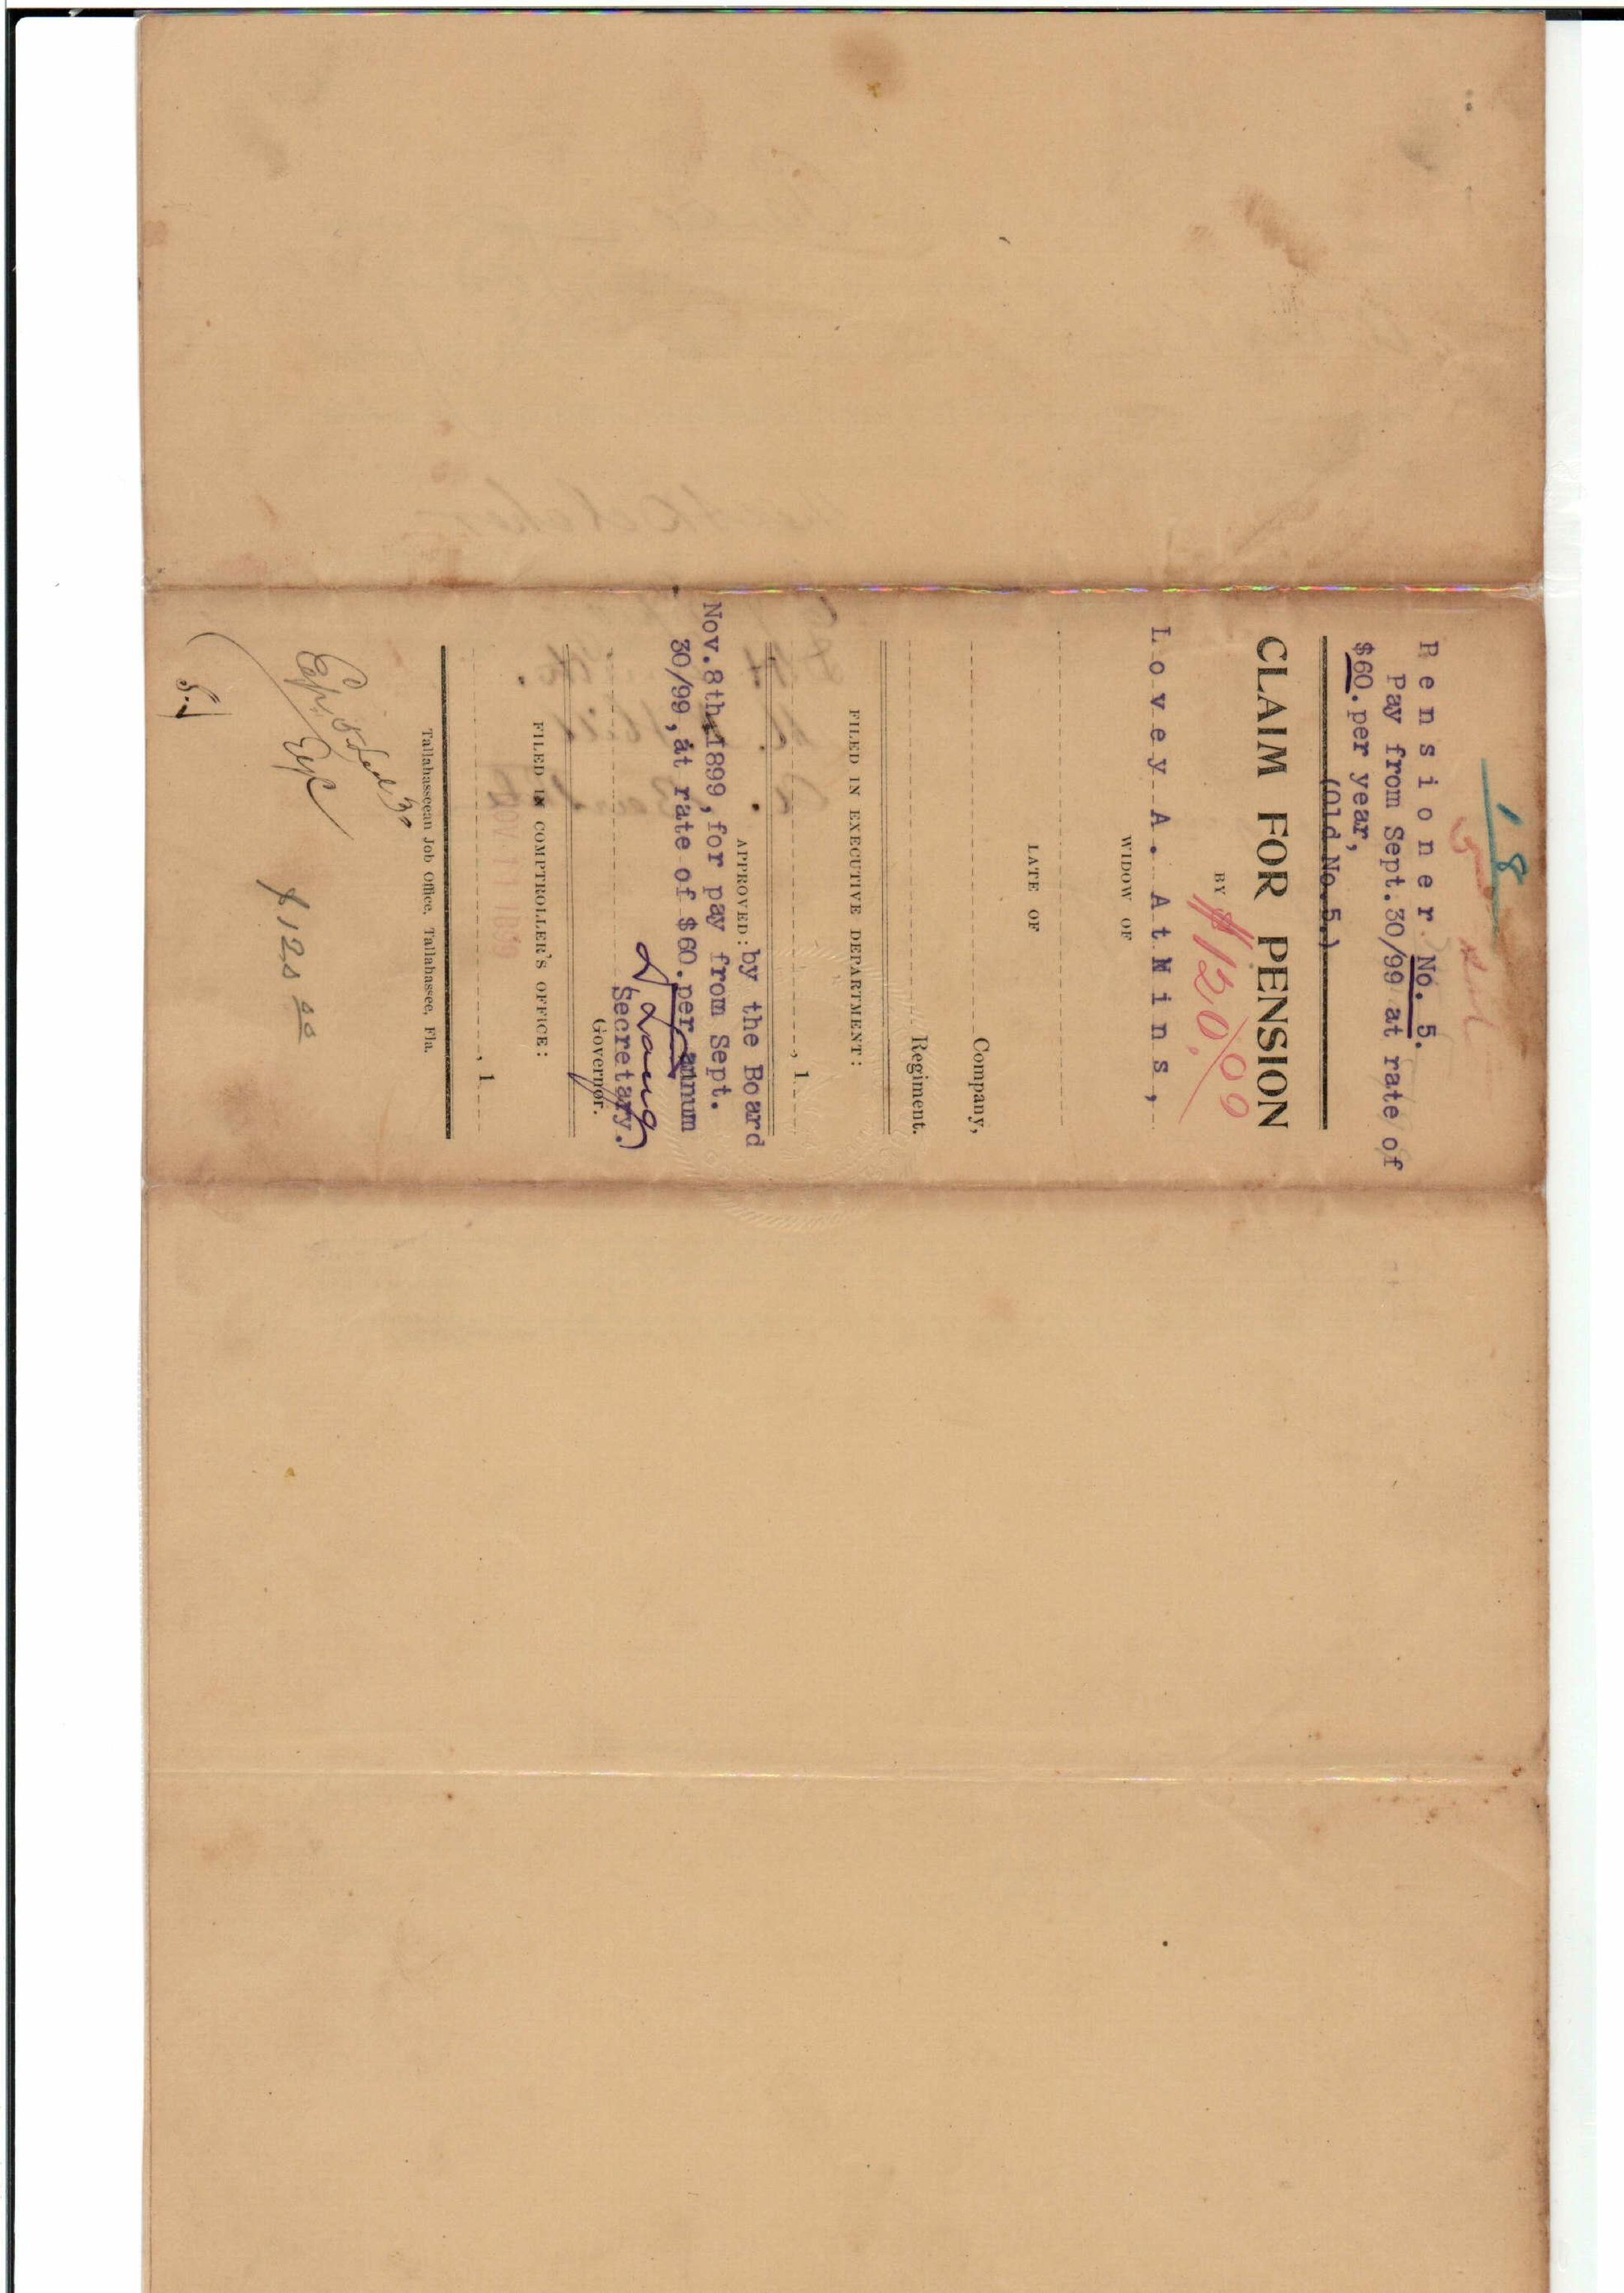 18
Pensioner No. 5.
Pay from Sept.30/99 at rate of
$60. per year,
(Old No. 5.)
CLAIM FOR PENSION
BY
$120.00
Lovey A. Atkins,
WIDOW OF
LATE OF
Company,
Regiment.
FILED IN EXECUTIVE DEPARTMENT:
, 1
APPROVED: by the Board
Nov.8th,1899, for pay from Sept.
30/99, at rate of $60. per annum
D. Lang
Secretary.)
Governor.
FILED IN COMPTROLLER'S OFFICE:
NOV 11 1899
, 1
Tallahasseean Job Office, Tallahassee, Fla.
$120 00